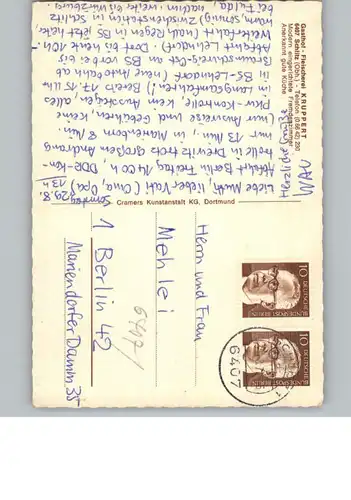 Gasthof - Fleischerei KRUPPERT
6407 Schlitz (Obh.) - Telefon (0 66 42) 290
Modern eingerichtete Fremdenzimmer
Anerkannt gute Küche
29.8.
Sonntag
13 h
Liebe Mutti, lieber Vati (Oma, Opa)
Abfahrt Berlin Freitag 14.00 h. DDR-Kon-
trolle in Drewitz trotz großen Andrang
nur 13 Min., in Marienborn 8 Min.
(nur Ausweise und keine Gebühren und
Pkw-Kontrolle, kein Aussteigen, alles
im Langsamfahren.) Bereits 17.15 h
in BS-Lehndorf (neue Autobahn ab
Braunschweig-Ost an BS vorbei bis
Abfahrt Lehndorf) Dort bis heute 11 h.
Weiterfahrt (nach Regen in BS jetzt heiter
warm, sonnig) Zwischenstation in Schlitz
bei Fulda, nachdem weiter
Herzliche Grüße
Cramers Kunstanstalt KG, Dortmund
Herrn und Frau
Mehlei
1 Berlin 42
Mariendorfer Damm 35
6407
10
DEUTSCHE BUNDESPOST BERLIN
10
DEUTSCHE BUNDESPOST BERLIN
6407